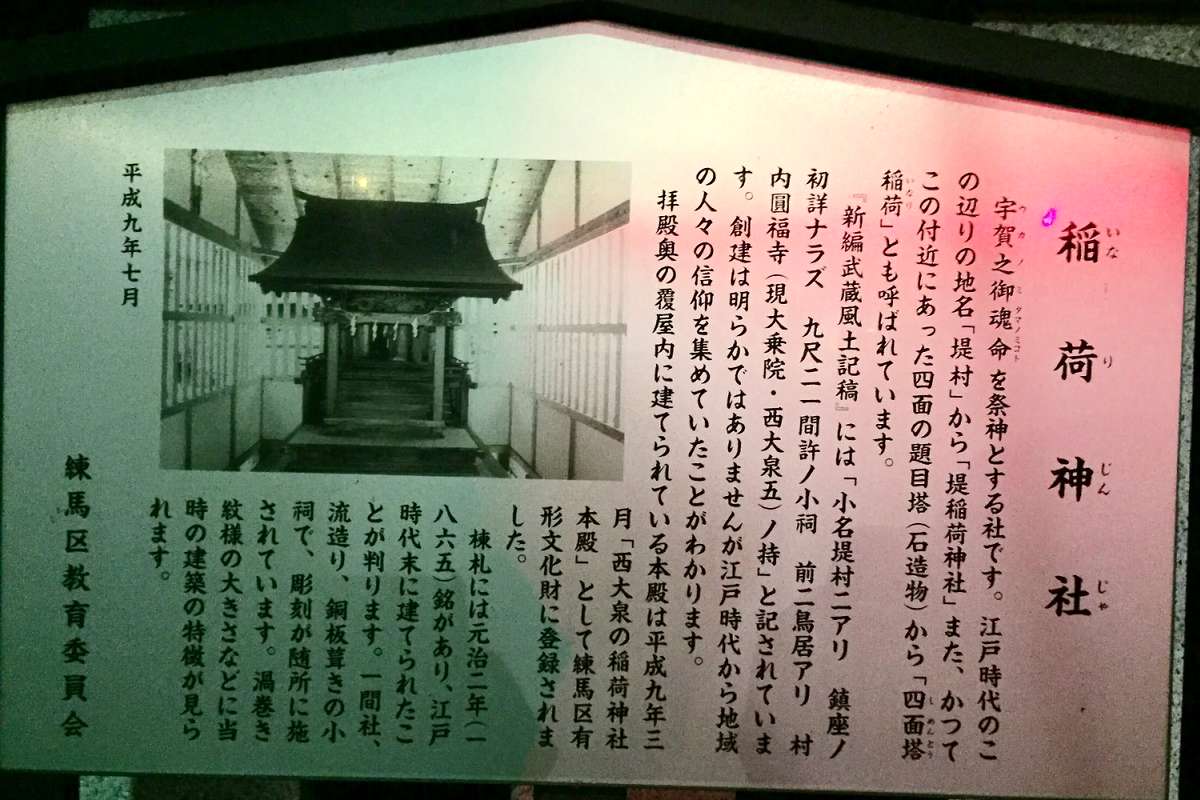 稲荷神社
いなりじんじゃ
宇賀之御魂命を祭神とする社です。江戸時代のこ
ウカノミタマノミコト
の辺りの地名「堤村」から「堤稲荷神社」また、かつて
この付近にあった四面の題目塔(石造物)から「四面塔
しめんとう
稲荷」とも呼ばれています。
いなり
『新編武蔵風土記稿』には「小名堤村ニアリ 鎮座ノ
初詳ナラズ 九尺ニ一間許ノ小祠 前ニ鳥居アリ 村
内圓福寺(現大乗院・西大泉五)ノ持」と記されていま
す。創建は明らかではありませんが江戸時代から地域
の人々の信仰を集めていたことがわかります。
拝殿奥の覆屋内に建てられている本殿は平成九年三
月「西大泉の稲荷神社
本殿」として練馬区有
形文化財に登録されま
した。
棟札には元治二年(一
八六五)銘があり、江戸
時代末に建てられたこ
とが判ります。一間社、
流造り、銅板葺きの小
祠で、彫刻が随所に施
されています。渦巻き
紋様の大きさなどに当
時の建築の特徴が見ら
れます。
平成九年七月
練馬区教育委員会